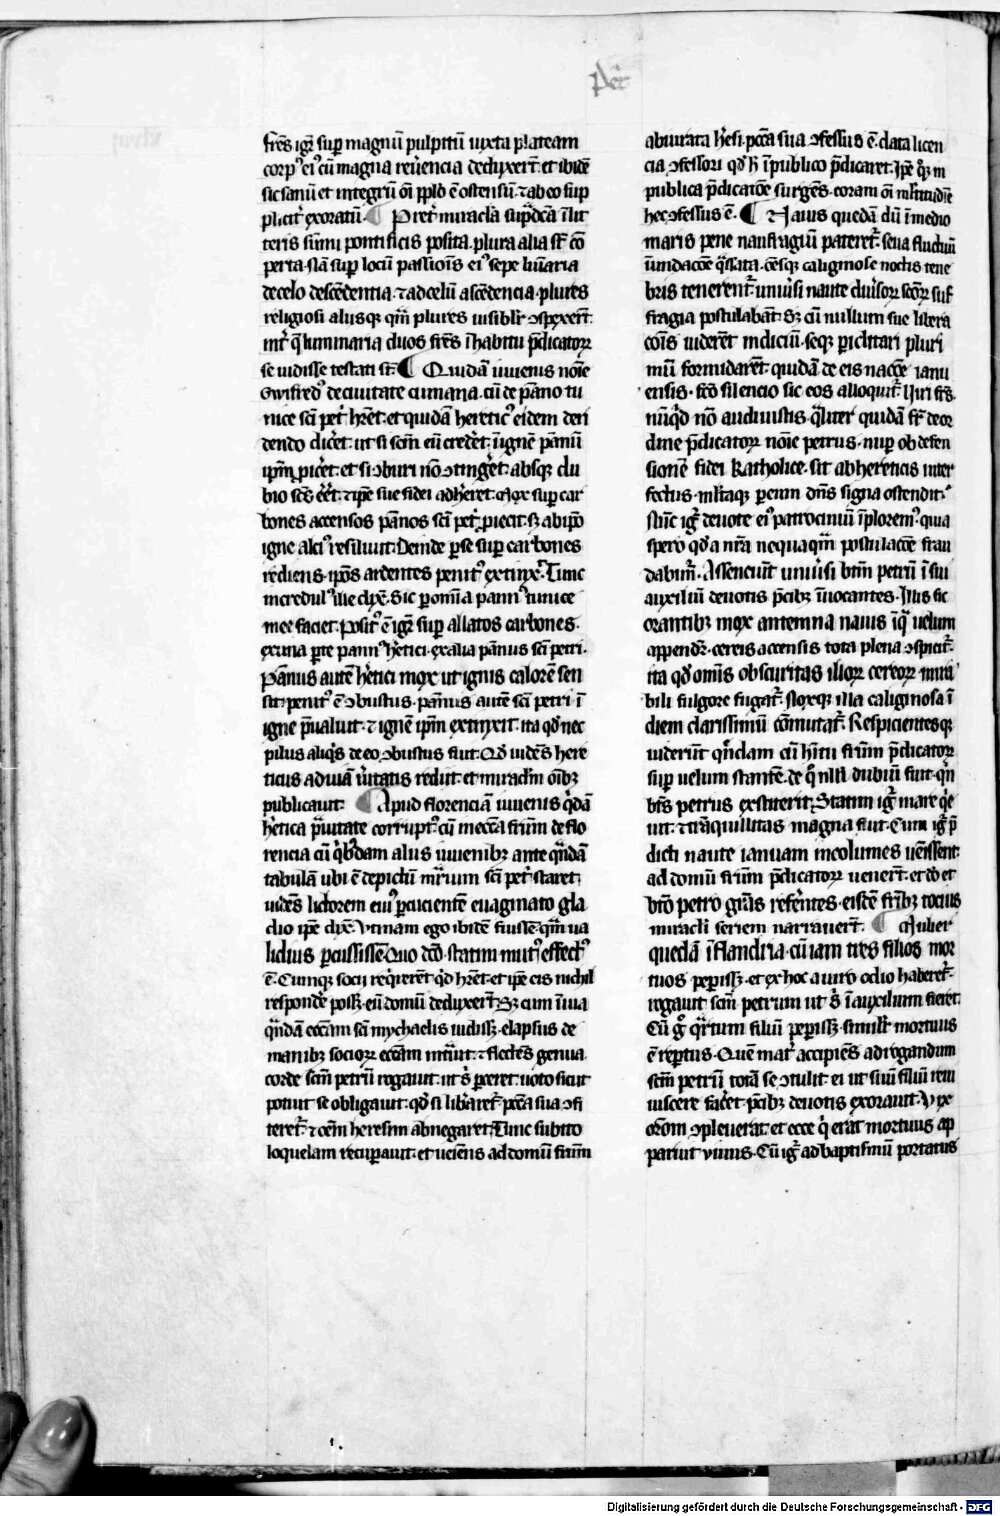 Pet᷑
fr̄es igr̄ sup̄ magnū pulpitū iuxta plateam
corpꝰ eiꝰ cū magna reu̾encia deduxer̄t et ibidē
sic sanū et integrū om̄i ppl̄o ē ostensū ⁊ ab eo sup
plicit᷑ exoratū. ¶ Pret̾ miracl̄a sup̾dc̄a in lit
teris sūmi pontificis posita plura alia sr̄t cō
perta Nā sup̄ locū passiōis eiꝰ sepe lūinaria
de celo descēdentia ⁊ ad celū ascēdencia plures
religiosi aliisqꝫ q̄m plures uisiblr̄ ↄspexer̄t.
int̾ q̄ luminaria duos fr̄es in habitu p̄dicatoꝝ
se uidisse testati sr̄t ¶ Quidā iuuenis noīe
Gwifredꝰ de ciuitate cumana cū de pāno tu
nice sc̄i pet̾ hr̄et et quidā hereticꝰ eidem deri
dendo dic̾et ut si sc̄m eū cred̾et in ignē pānū
ip̄m p̾ic̾et et si ↄburi nō ↄting̾et absqꝫ du
bio sc̄s e̾et ⁊ ip̄e sue fidei adh̾eret Mox sup̄ car
bones accensos pānos sc̄i pet̾ p̾iecit sꝫ ab ip̄o
igne alciꝰ resiliuit Deinde p̄ se sup̄ carbones
rediens ip̄os ardentes penitꝰ extinx̾. Tunc
incredulꝰ ille dix̄ Sic p̄ om̄ia pannꝰ tunice
mee faciet Positꝰ ē igr̄ sup̄ allatos carbones
ex una p̄te pannꝰ h̾etici ex alia pānus sc̄i petri.
Pānus autē h̾etici mox ut ignis calorē sen
sit penitꝰ ē ↄbustus pānus autē sc̄i petri ī
igne p̾ualuit ⁊ ignē ip̄m extinxit ita qd̾ nec
pilus aliqs̾ de eo ↄbustus fuit Qd̾ uidēs here
ticus ad uiā u̾itatis rediit et miraclm̄ oībꝫ
publicauit ¶ Apud florenciā iuuenis q̾dā
h̾etica p̾uitate corruptꝰ cū mecc̄a fr̄um de flo
rencia cū q̾bdam aliis iuuenibꝫ ante quādā
tabulā ubi ē depictū mr̄irum sc̄i pet̾ staret
uidēs lictorem eiuꝰ p̄cucientē euaginato gla
dio ip̄e dix̄ Vtinam ego ibidē fuissē q̄m ua
lidius p̄cussissē Quo dc̄o statim mutꝰ effectꝰ
ē Cumqꝫ socij req̾rerēt qd̾ hr̄et et ip̄e eis nichil
respondē̾ possꝫ eū domū deduxer̄t Sꝫ cum ī uia
quādā ecc̄am sc̄i mychaelis uidissꝫ elapsus de
manibꝫ socioꝝ ecc̄am intuit ⁊ flectēs genua
corde sc̄m petrū rogauit ut s̾ p̄ceret uoto sicut
potuit se obligauit qd̾ si lib̾aret᷑ pc̄ca sua ↄfi
teret᷑ ⁊ oēm heresim abnegaret Tunc subito
loquelam recup̄auit et ueiēns ad domū fr̄um
abiurata h̾esi pc̄ca sua ↄfessus ē data licen
cia ↄfessori qd̾ h̾ ī publico p̄dicaret Ip̄e q̾ꝫ in
publica p̄dicac̄oe surgēs coram oī ml̄titudīe
hec ↄfessus ē ¶ Nauis quedā dū ī medio
maris pene naufragiū pateret᷑ seua fluctuū
inūdac̄oe q̾ssata cēsqꝫ caliginose noctis tene
bris tenerent᷑ uniu̾si naute diu̾soꝝ sc̄oꝝ suf
fragia postulabāt Sꝫ cū nullum sue libera
cōis uiderēt indiciū seqꝫ p̄iclitari pluri
mū formidarēt quidā de eis nac̄oe ianu
ensis fc̄o silencio sic eos alloquit᷑ Viri fr̄s
nūq̾d nō audiuistis q̾liter quidā fr̄ de or
dine p̄dicatoꝝ noīe petrus nup̄ ob defen
sionē fidei Katholice sit ab hereticis inter
fectus ml̄taqꝫ p̄ eum dn̄s signa ostendit.
Nūc igr̄ deuote eiꝰ patrociniū īploremꝰ quia
spero qd̾ a nr̄a nequaqm̄ postulac̄oe frau
dabim̾. Assenciūt uniu̾si btm̄ petrū ī sui
auxiliū deuotis p̄cibꝫ īuocantes Illis sic
orantibꝫ mox antemna nauis ī q̾ uelum
appendr̄ cereis accensis tota plena ↄspicit᷑
ita qd̾ om̄is obscuritas illoꝝ cereoꝝ mira
bili fulgore fugat᷑ Noxqꝫ illa caliginosa ī
diem clarissimū cōmutat᷑ Respicientesqꝫ
uiderūt qn̄dam cū h̾itu fr̄um p̄dicatoꝝ
sup̄ uelum stantē de q̾ nlli dubiū fuit qn̄
bt̄s petrus exstiterit Statim igr̄ mare q̾e
uit ⁊ trāquillitas magna fiut Cum igr̄ p̄
dicti naute ianuam incolumes uēissent
ad domū fr̄um p̄dicatoꝝ uenert̄ et do et
bt̄o petro gr̄as refe̾ntes eisdē fr̄ibꝫ tocius
miracli̾ seriem narrauert̄ ¶ Mulier
quedā ī flandria cū iam tres filios mor
tuos pep̄issꝫ et ex hoc a uiro odio haberet᷑
rogauit sc̄m petrum ut s̾ ī auxilium fieret
Cū g̾ q̾rtum filiū pep̄issꝫ similr̄ mortuus
ē rep̄tus Quē mat̾ accipiēs ad rogandum
sc̄m petrū totā se ↄtulit ei ut suū filiū reui
uiscere fac̾et p̄cibꝫ deuotis exorauit Vix
or̄om ↄpleuerat et ecce q̾ erat mortuus ap
paruit viuus Cū igr̄ ad baptismū portatus
Digitalisierung gefördert durch die Deutsche Forschungsgemeinschaft - DFG